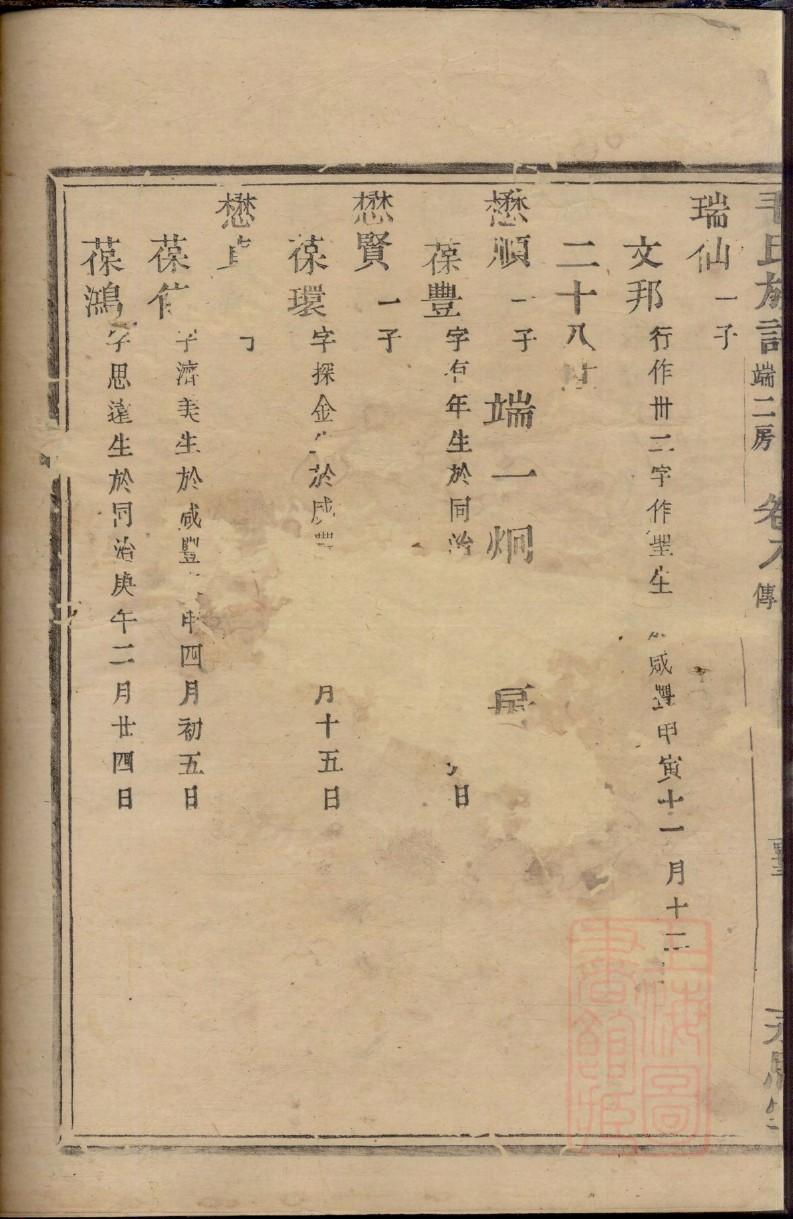 毛氏族譜 端二房 卷 傳
瑞仙 一子
文邦 行作卅二字作聖生 咸豐甲寅十一月十二
二十八世
懋順 一子 端一炯 房
葆豐 字有年生於同治 日
懋賢 一子
葆環 字探金生於咸豐 月十五日
懋
葆 字濟美生於咸豐 申四月初五日
葆鴻 字思遠生於同治庚午二月廿四日
上海圖書館藏